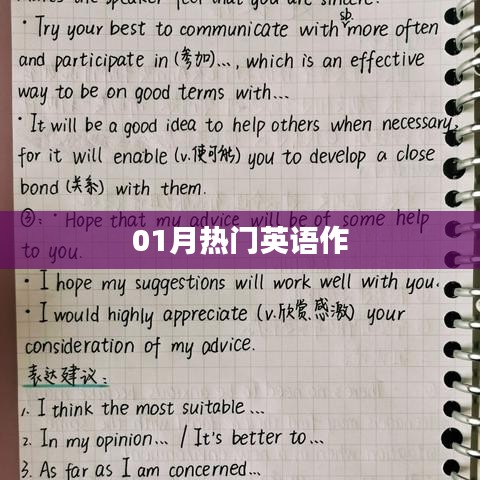 makes the speaker feel that you are sincere.
· Try your best to communicate with sb. more often
and participate in (参加)..., which is an effective
way to be on good terms with...
· It will be a good idea to help others when necessary,
for it will enable (v.使可能) you to develop a close
bond (关系) with them.
③: · Hope that my advice will be of some help
to you.
01月热门英语作
· I hope my suggestions will work well with you.
· I would highly appreciate (v.欣赏.感激) your
consideration of my advice.
表达建议:
1. I think the most suitable...
2. In my opinion... / It's better to...
3. As far as I am concerned...